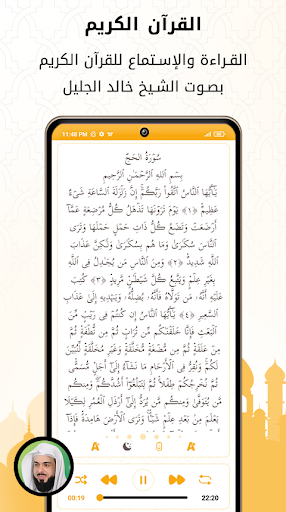 القرآن الكريم
القراءة والإستماع للقرآن الكريم
بصوت الشيخ خالد الجليل
11:48 PM
سُورَةُ الحَجِّ
بِسْمِ اللَّهِ الرَّحْمَٰنِ الرَّحِيمِ
يَٰٓأَيُّهَا النَّاسُ اتَّقُوا۟ رَبَّكُمْ إِنَّ زَلْزَلَةَ السَّاعَةِ شَىْءٌ
عَظِيمٌ ﴿١﴾ يَوْمَ تَرَوْنَهَا تَذْهَلُ كُلُّ مُرْضِعَةٍ عَمَّآ
أَرْضَعَتْ وَتَضَعُ كُلُّ ذَاتِ حَمْلٍ حَمْلَهَا وَتَرَى
النَّاسَ سُكَٰرَىٰ وَمَا هُم بِسُكَٰرَىٰ وَلَٰكِنَّ عَذَابَ
اللَّهِ شَدِيدٌ ﴿٢﴾ وَمِنَ النَّاسِ مَن يُجَٰدِلُ فِى اللَّهِ
بِغَيْرِ عِلْمٍ وَيَتَّبِعُ كُلَّ شَيْطَٰنٍ مَّرِيدٍ ﴿٣﴾ كُتِبَ
عَلَيْهِ أَنَّهُۥ مَن تَوَلَّاهُ فَأَنَّهُۥ يُضِلُّهُۥ وَيَهْدِيهِ إِلَىٰ عَذَابِ
السَّعِيرِ ﴿٤﴾ يَٰٓأَيُّهَا النَّاسُ إِن كُنتُمْ فِى رَيْبٍ مِّنَ
الْبَعْثِ فَإِنَّا خَلَقْنَٰكُم مِّن تُرَابٍ ثُمَّ مِن نُّطْفَةٍ ثُمَّ
مِنْ عَلَقَةٍ ثُمَّ مِن مُّضْغَةٍ مُّخَلَّقَةٍ وَغَيْرِ مُخَلَّقَةٍ لِّنُبَيِّنَ
لَكُمْ وَنُقِرُّ فِى الْأَرْحَامِ مَا نَشَآءُ إِلَىٰٓ أَجَلٍ مُّسَمًّى
ثُمَّ نُخْرِجُكُمْ طِفْلًا ثُمَّ لِتَبْلُغُوٓا۟ أَشُدَّكُمْ وَمِنكُم
مَّن يُتَوَفَّىٰ وَمِنكُم مَّن يُرَدُّ إِلَىٰٓ أَرْذَلِ الْعُمُرِ لِكَيْلَا
يَعْلَمَ مِن بَعْدِ عِلْمٍ شَيْـًٔا وَتَرَى الْأَرْضَ هَامِدَةً فَإِذَآ
00:19
22:20